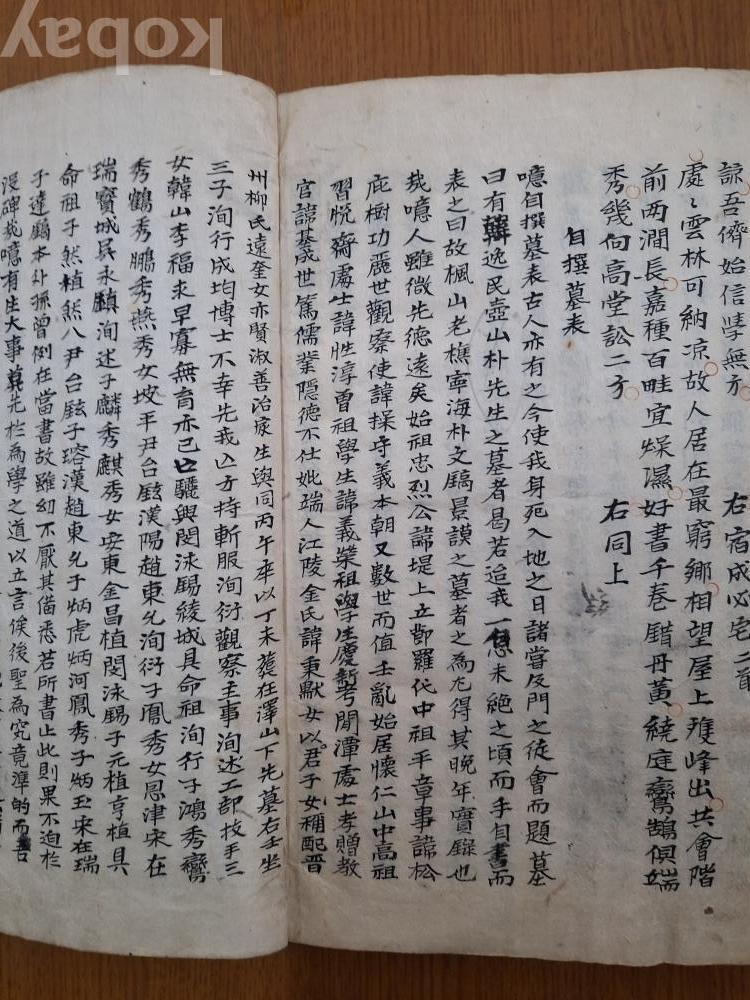 諒吾儕始信學無方 右宿成必宅二首
處〻雲林可納凉故人居在最窮鄉相望屋上雙峰出共會階
前两澗長嘉種百畦宜燥濕好書千卷錯丹黃繞庭鸞鵠俱端
秀幾向高堂訟二方 右同上
自撰墓表
噫自撰墓表古人亦有之今使我身死入地之日諸當友門之徒會而題墓
曰有韓逸民壺山朴先生之墓者曷若迨我一息未絶之頃而手自書而
表之曰故楓山老樵寧海朴文鎬景謨之墓者之為尤得其晩年實錄也
哉噫人雖微先德遠矣始祖忠烈公諱堤上立節羅代中祖平章事諱松
庇樹功麗世觀察使諱操守義本朝又數世而值壬亂始居懷仁山中高祖
習悅齋處士諱性淳曾祖學生諱義榮祖學生慶新考聞渾處士孝贈教
官諱基成世篤儒業隱德不仕妣端人江陵金氏諱秉默女以君子女稱配晋
州柳氏遠奎女亦賢淑善治家生與同丙午卒以丁未葬在澤山下先墓右壬坐
三子洵行成均博士不幸先我亡方持斬服洵衍觀察主事洵述工部技手三
女韓山李福求早寡無育亦已亡驪興閔泳錫綾城具命祖洵行子鴻秀鸞
秀鶴秀鵬秀燕秀女坡平尹台鉉漢陽趙東允洵衍子鳳秀女恩津宋在
瑞寶城吳永鎮洵述子麟秀麒秀女安東金昌植閔泳錫子元植亨植具
命祖子然植然八尹台鉉子瑢漢趙東允子炳虎炳河鳳秀子炳玉宋在瑞
子達鎬本外孫曾例在當書故雖幼不厭其備悉若所書止此則果不迫於
漫碑哉噫有生大事莫先於為學之道以立言俟後聖為究竟準的而吾
kobay